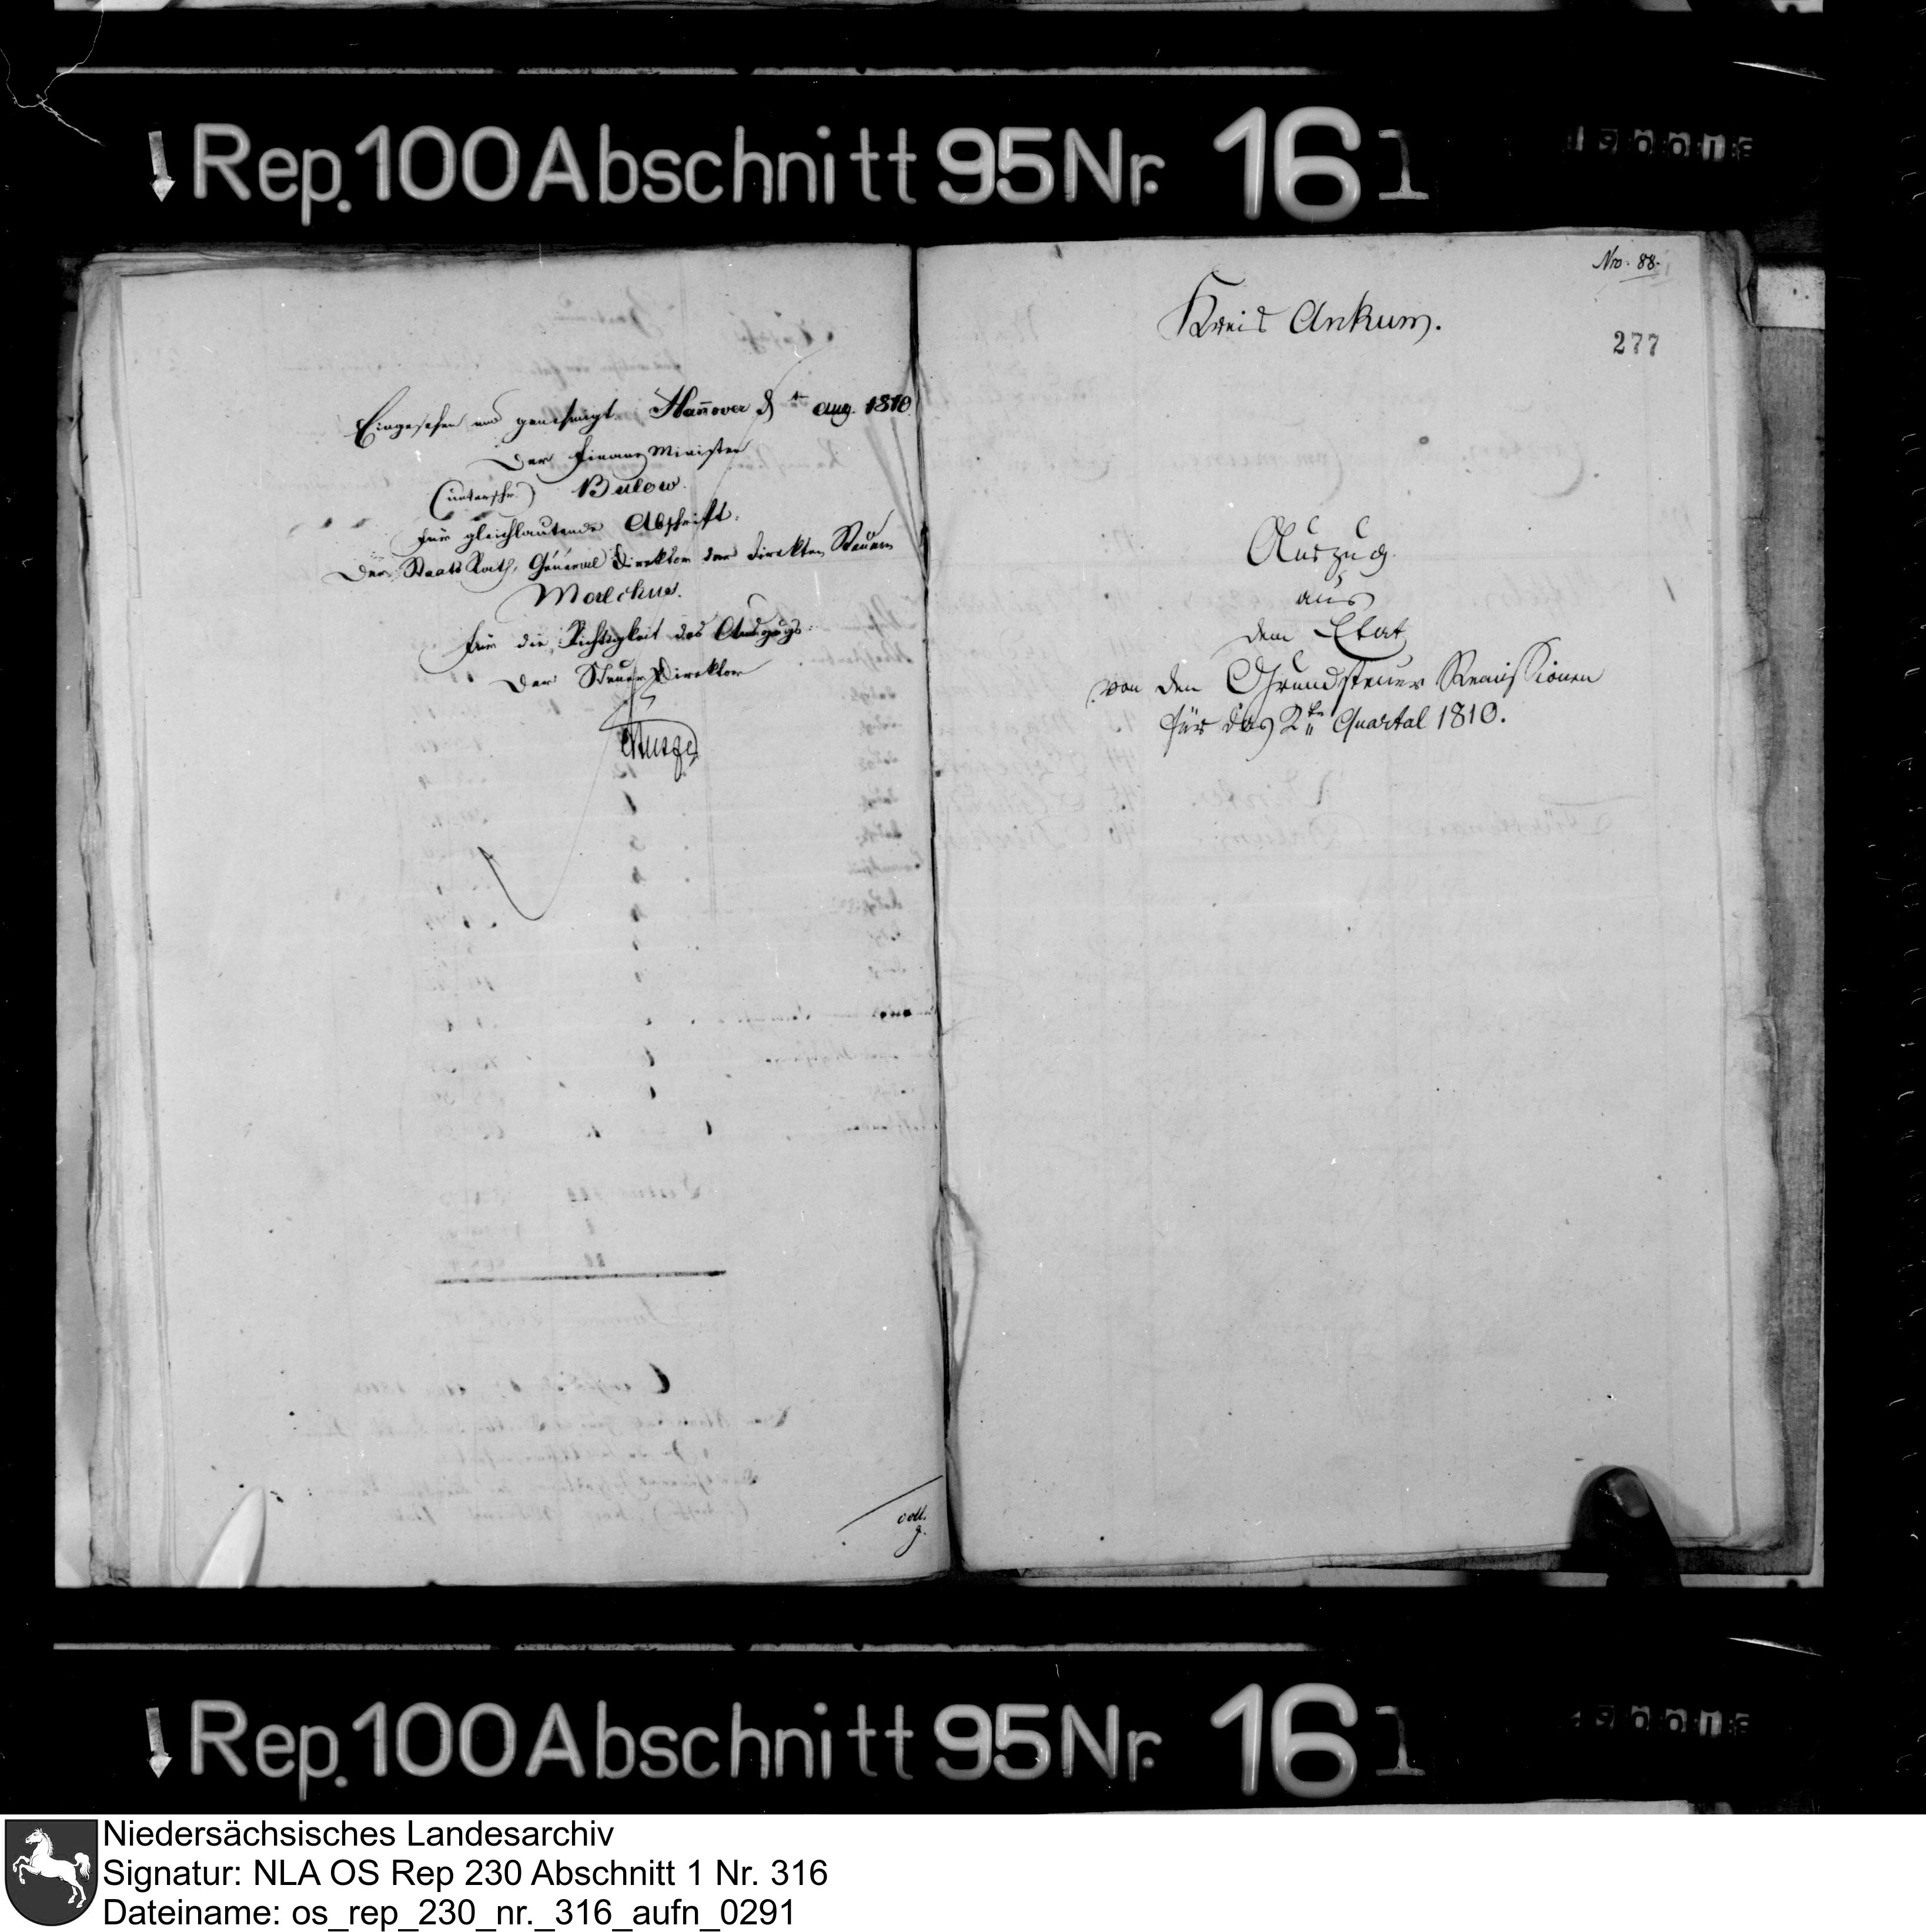 Rep. 100 Abschnitt 95 Nr. 161
Eingesehen und genehmigt. Hannover 8 t Aug. 1810
Der Finanz Minister
(unterschr.) Bulow.
Für gleichlautende Abschrift:
Der Staats Rath, General Direktor der direkten Steuern
Malchus.
Für die Richtigkeit des Auszugs:
Der Steuer Direktor
coll.
Nro. 88.
Kreis Ankum.
277
Auszug
aus
dem Etat
von den Grundsteuer Remissionen
für das 2te Quartal 1810.
Rep. 100 Abschnitt 95 Nr. 161
Niedersächsisches Landesarchiv
Signatur: NLA OS Rep 230 Abschnitt 1 Nr. 316
Dateiname: os_rep_230_nr._316_aufn_0291